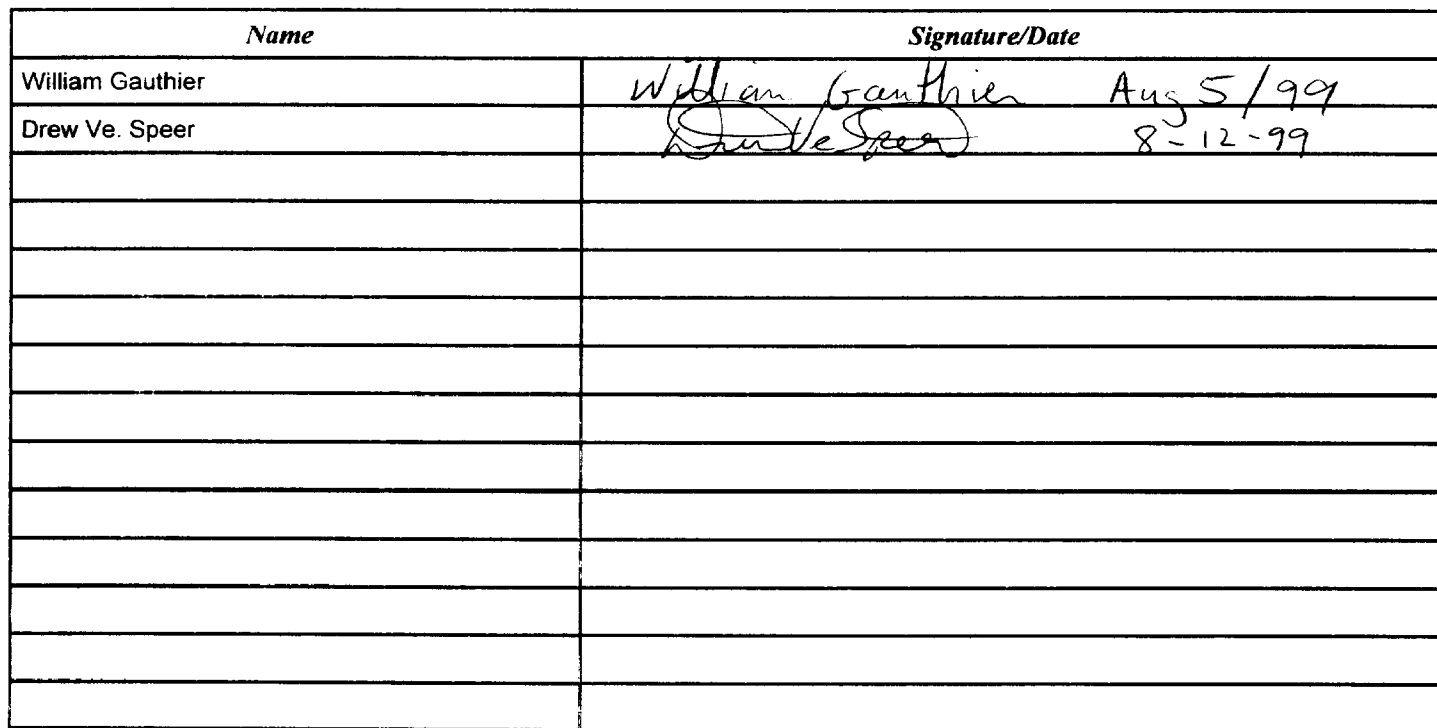 Name Signature/Date
William Gauthier William Gauthier Aug 5/99
Drew Ve. Speer Drew Ve Speer 8-12-99